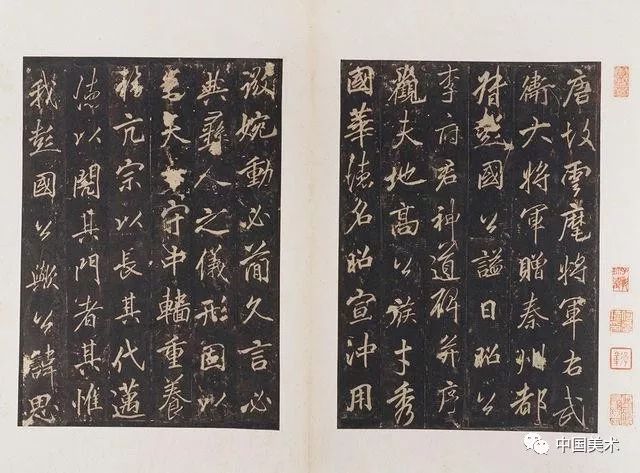 唐故雲麾將軍右武
衛大將軍贈秦州都
督彭國公謚曰昭公
李府君神道碑并序
觀夫地高公族才秀
國華德名昭宣沖用
婉動必簡久言必
典彝人之儀形固以
夫守中轓重養
亢宗以長其代邁
德以闢其門者其惟
我彭國公歟公諱思
中国美术